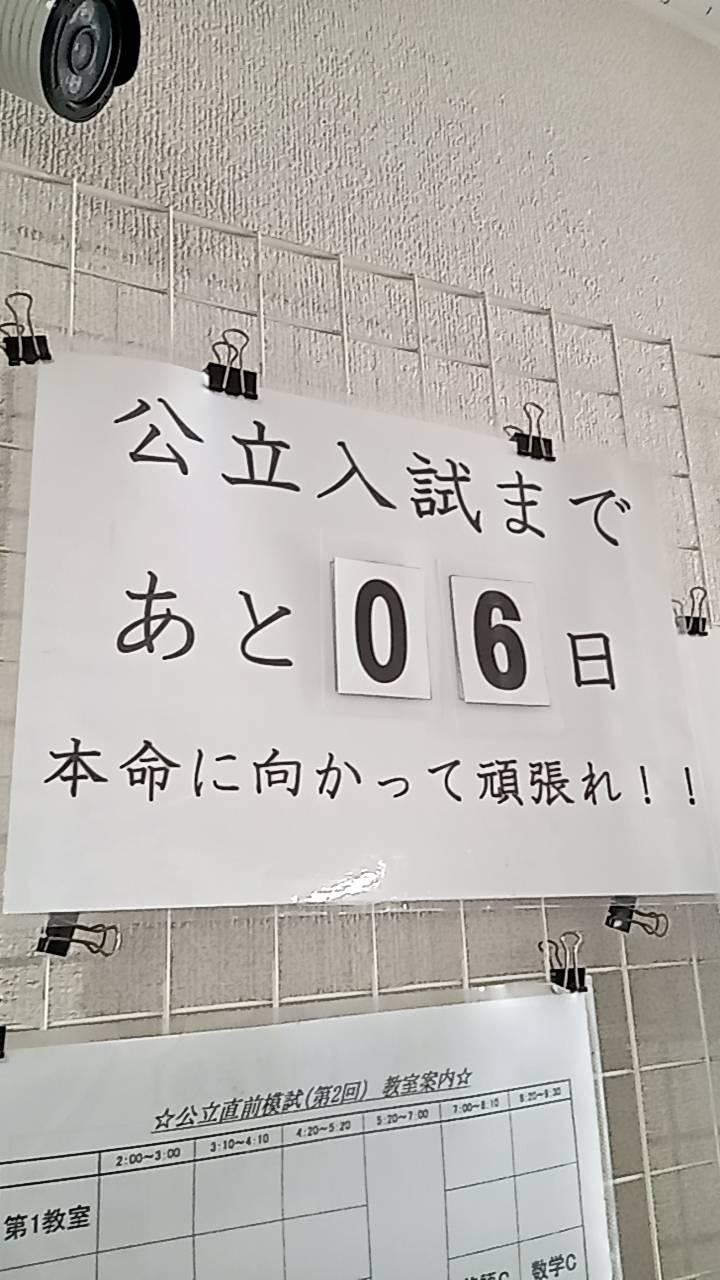 公立入試まで
あと06日
本命に向かって頑張れ！！
☆公立直前模試(第2回) 教室案内☆
2:00～3:00 3:10～4:10 4:20～5:20 5:20～7:00 7:00～8:10 8:20～9:30
第1教室
数学C